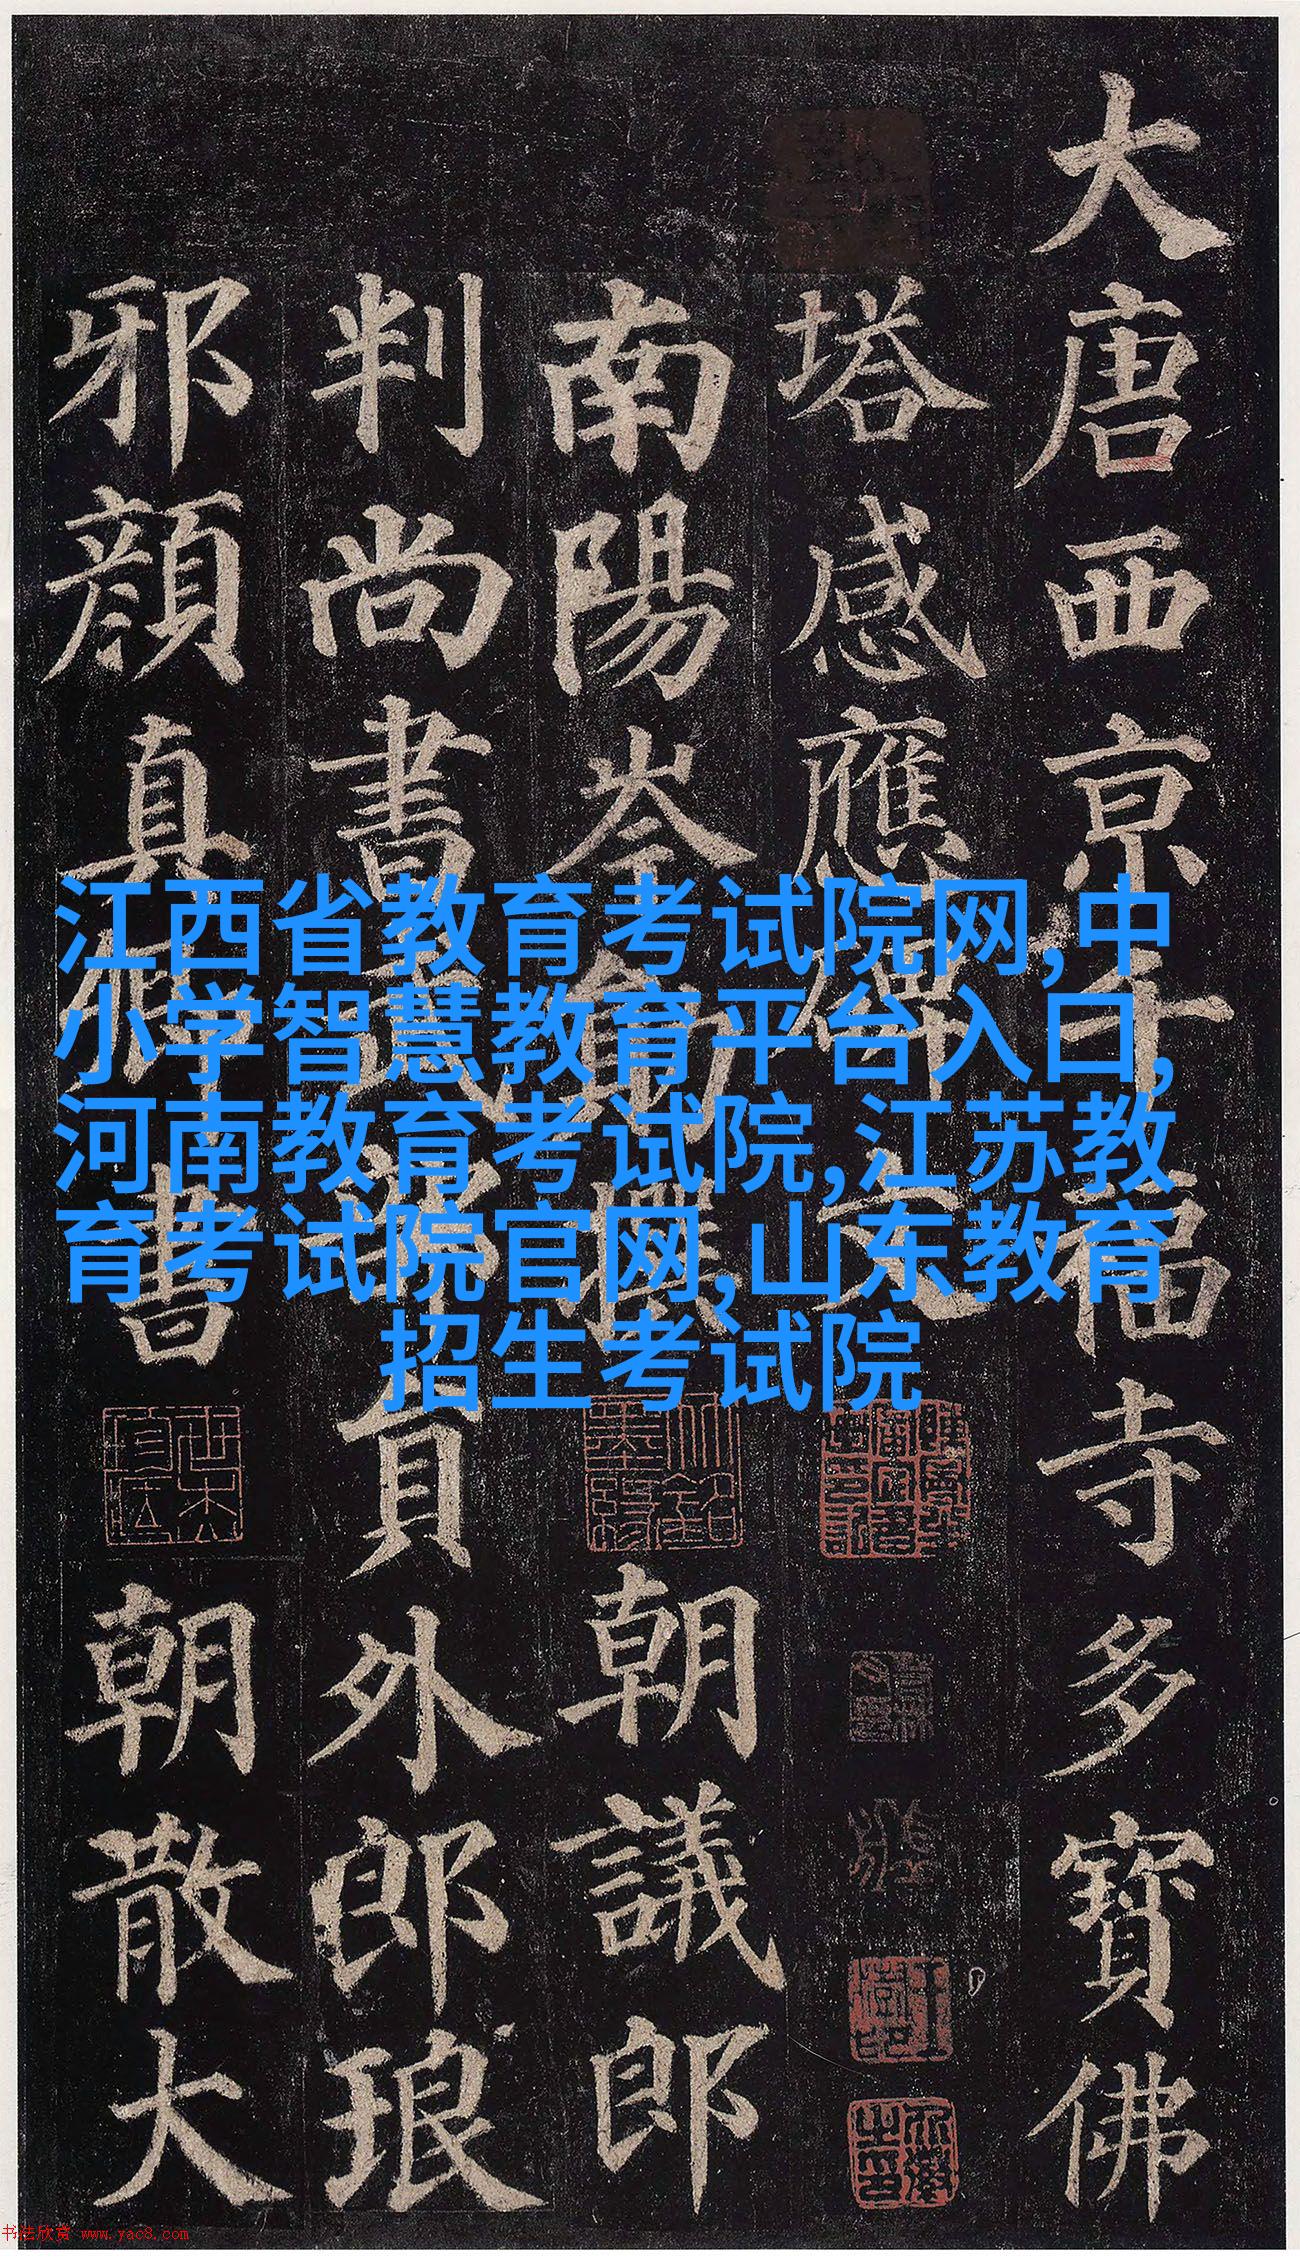 大唐西京千福寺多寳佛
塔感應碑文
南陽岑勛撰 朝議郎
判尚書武部員外郎琅
邪顔真卿書 朝散大
江西省教育考试院网,中
小学智慧教育平台入口,
河南教育考试院,江苏教
育考试院官网,山东教育
招生考试院
书法欣赏 www.yac8.com